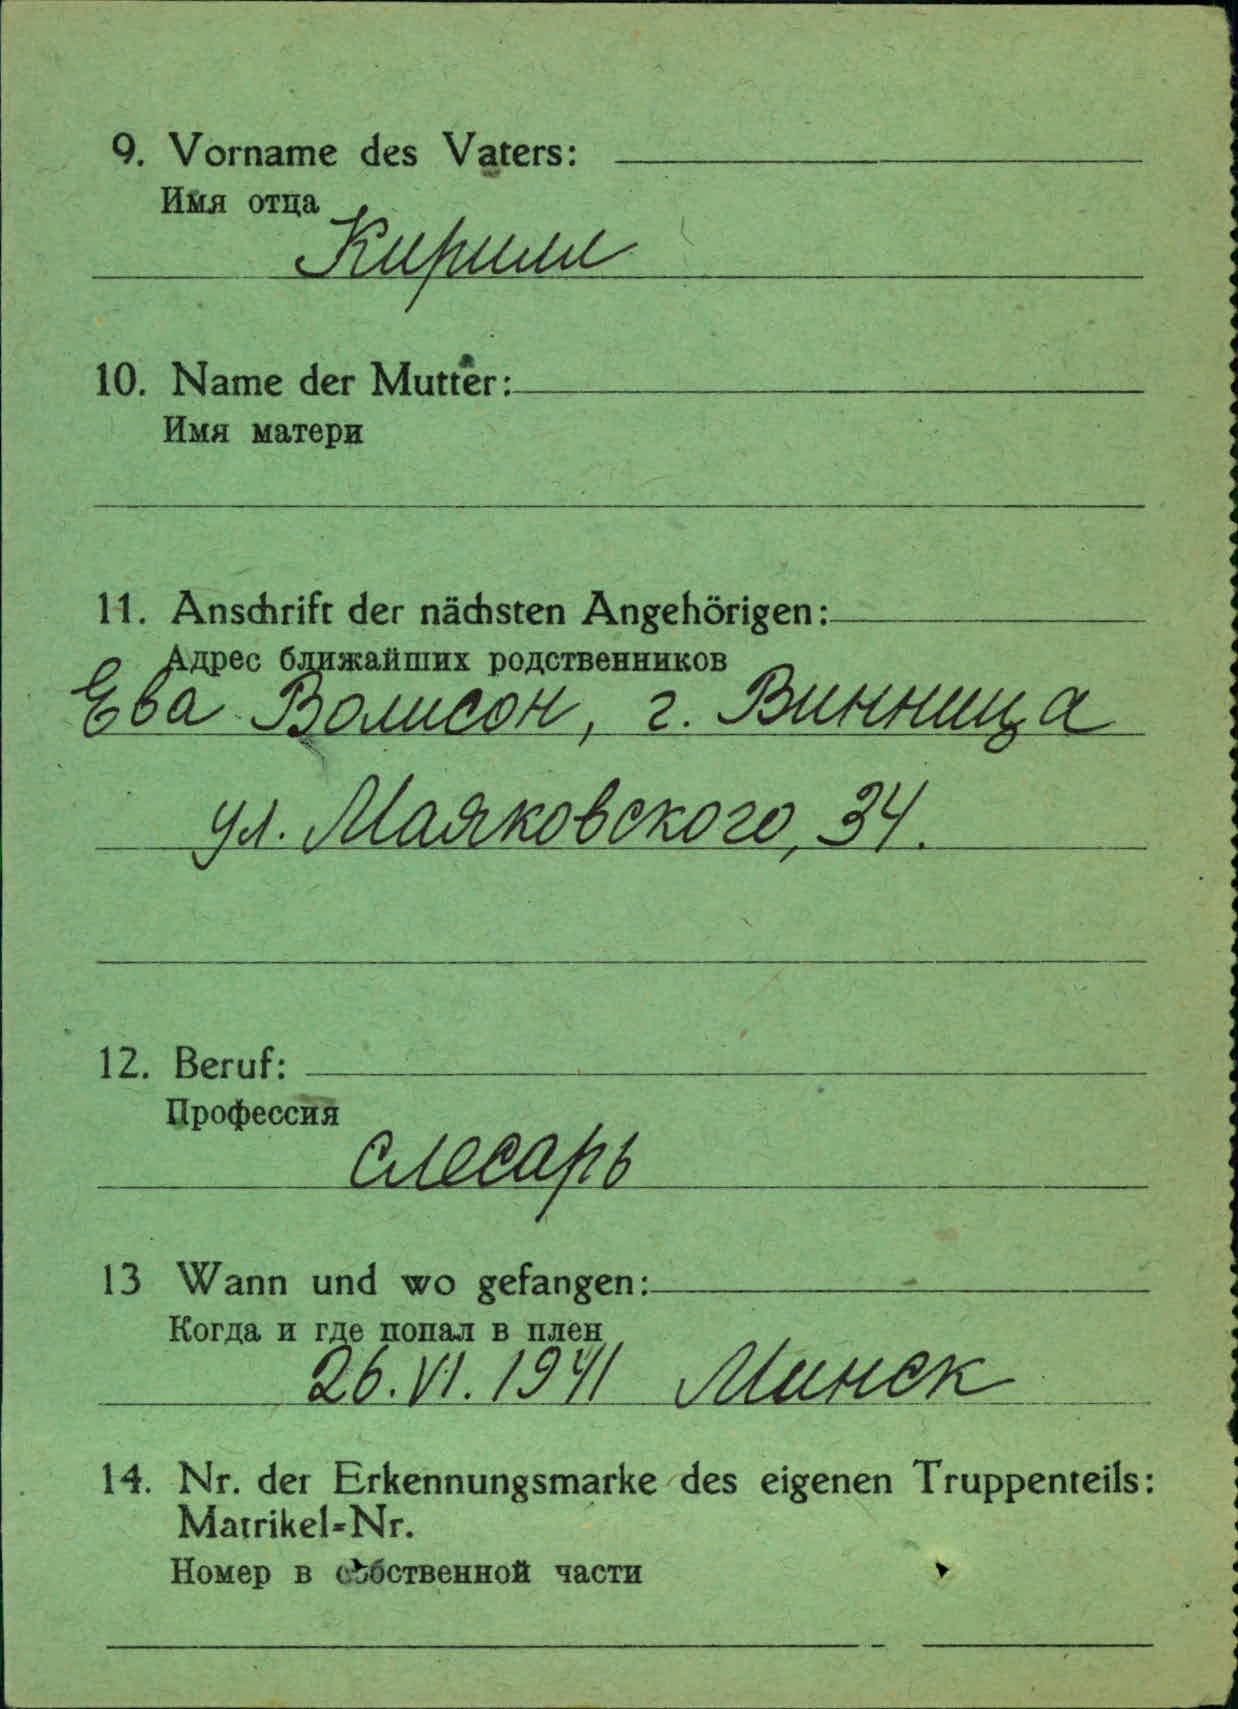 9. Vorname des Vaters:
Имя отца
Кирилл
10. Name der Mutter:
Имя матери
11. Anschrift der nächsten Angehörigen:
Адрес ближайших родственников
Ева Волисон, г. Винница
ул. Маяковского, 34.
12. Beruf:
Профессия
слесарь
13 Wann und wo gefangen:
Когда и где попал в плен
26.VI.1941 Минск
14. Nr. der Erkennungsmarke des eigenen Truppenteils:
Matrikel-Nr.
Номер в собственной части